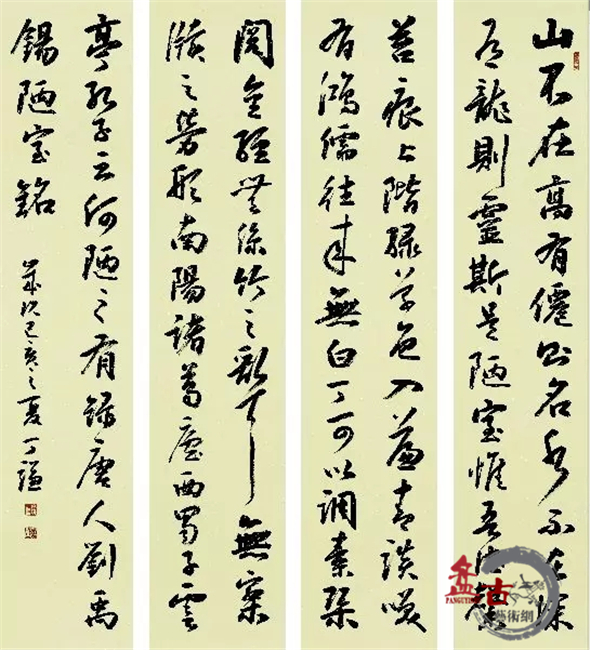 山不在高有僊則名水不在深
有龍則靈斯是陋室惟吾德馨
苔痕上階綠草色入簾青談笑
有鴻儒往來無白丁可以調素琴
閱金經無絲竹之亂耳無案
牘之勞形南陽諸葛廬西蜀子雲
亭孔子云何陋之有錄唐人劉禹
錫陋室銘 歲次己亥之夏丁謙
盘古
藝術網